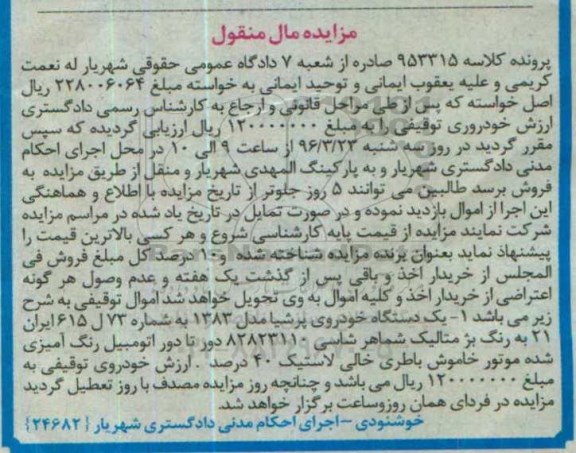 مزایده مال منقول
پرونده کلاسه ۹۵۳۳۱۵ صادره از شعبه ۷ دادگاه عمومی حقوقی شهریار له نعمت
کریمی و علیه یعقوب ایمانی و توحید ایمانی به خواسته مبلغ ۲۲۸۰۰۶۰۶۴ ریال
اصل خواسته که پس از طی مراحل قانونی و ارجاع به کارشناس رسمی دادگستری
ارزش خودروری توقیفی را به مبلغ ۱۲۰۰۰۰۰۰۰ ریال ارزیابی گردیده که سپس
مقرر گردید در روز سه شنبه ۹۶/۳/۲۳ از ساعت ۹ الی ۱۰ در محل اجرای احکام
مدنی دادگستری شهریار و به پارکینگ المهدی شهریار و منقل از طریق مزایده به
فروش برسد طالبین می توانند ۵ روز جلوتر از تاریخ مزایده با اطلاع و هماهنگی
این اجرا از اموال بازدید نموده و در صورت تمایل در تاریخ یاد شده در مراسم مزایده
شرکت نمایند مزایده از قیمت پایه کارشناسی شروع و هر کسی بالاترین قیمت را
پیشنهاد نماید بعنوان برنده مزایده شناخته شده و۱۰ درصد کل مبلغ فروش فی
المجلس از خریدار اخذ و باقی پس از گذشت یک هفته و عدم وصول هر گونه
اعتراضی از خریدار اخذ و کلیه اموال به وی تحویل خواهد شد اموال توقیفی به شرح
زیر می باشد ۱- یک دستگاه خودروی پرشیا مدل ۱۳۸۳ به شماره ۷۳ ل ۶۱۵ ایران
۲۱ به رنگ بژ متالیک شماهر شاسی ۸۲۸۲۳۱۱۰ دور تا دور اتومبیل رنگ آمیزی
شده موتور خاموش باطری خالی لاستیک ۴۰ درصد . ارزش خودروی توقیفی به
مبلغ ۱۲۰۰۰۰۰۰۰ ریال می باشد و چنانچه روز مزایده مصدف با روز تعطیل گردید
مزایده در فردای همان روزوساعت برگزار خواهد شد.
خوشنودی -اجرای احکام مدنی دادگستری شهریار {۲۴۶۸۲}